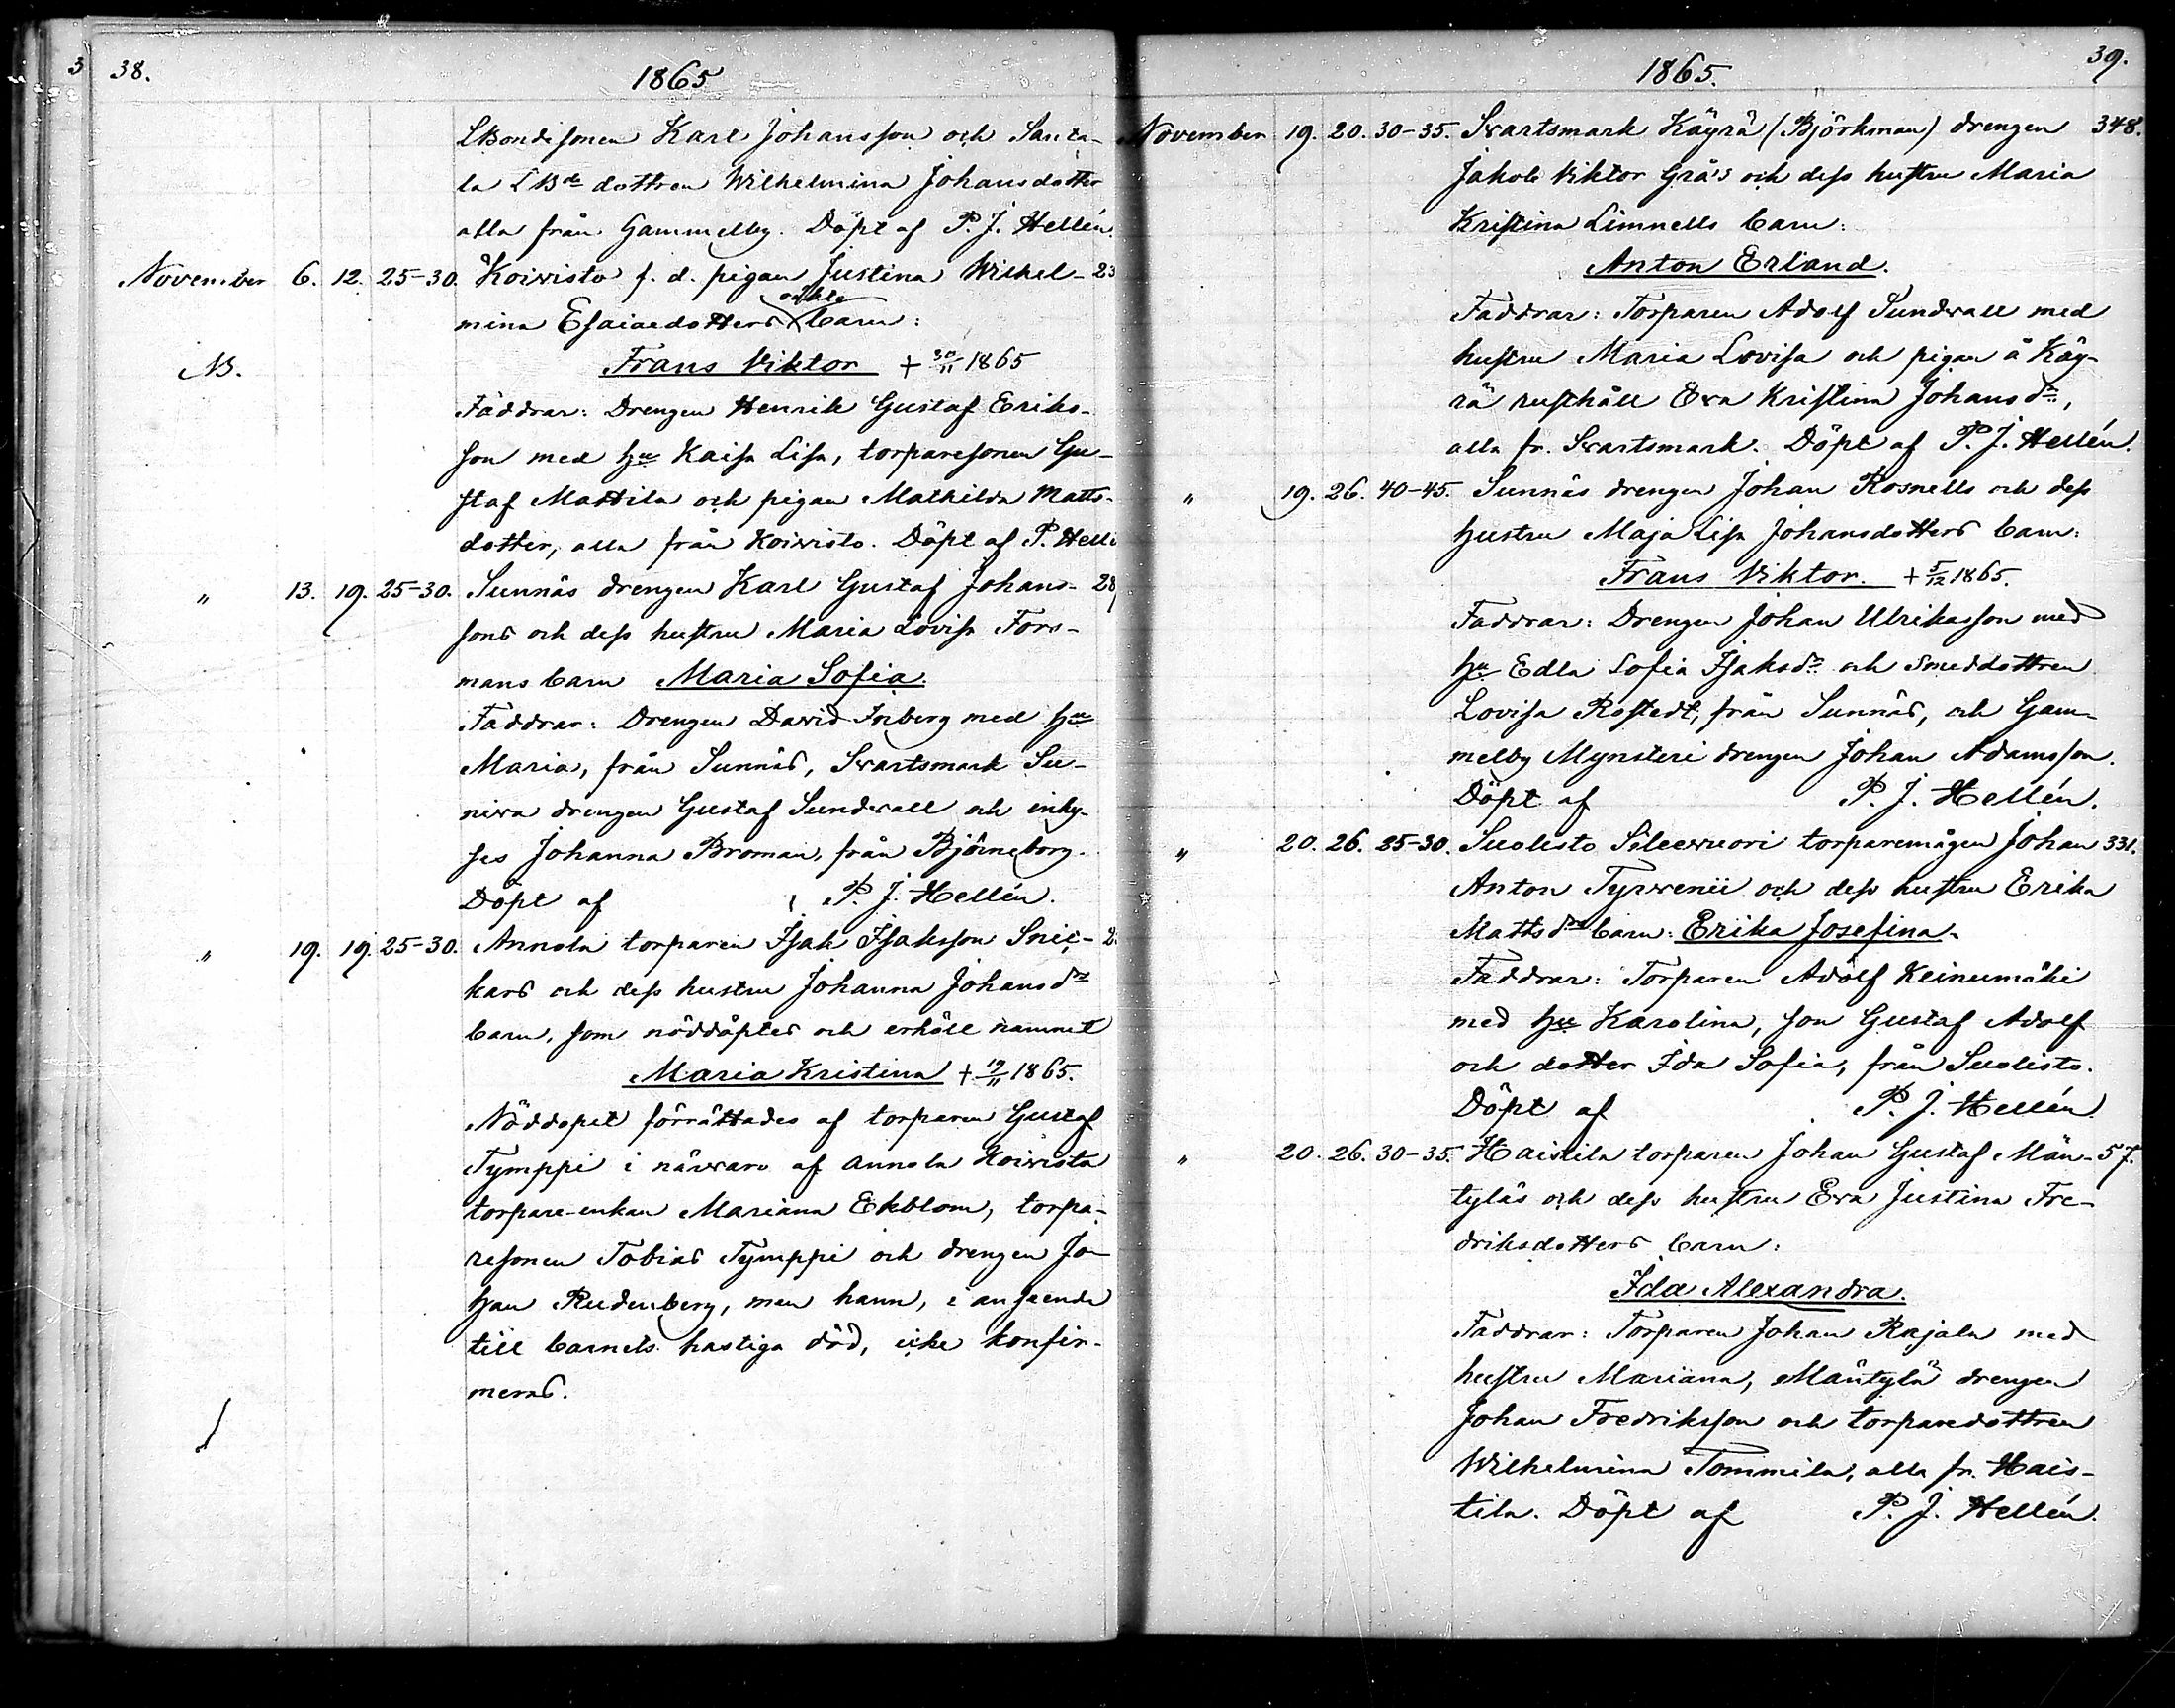 3 38.
1865
LBondesonen Karl Johansson och Santa-
la LBde dottren Wilhelmina Johansdotter
alla från Gammelby. Döpt af P. J. Hellén.
November 6. 12. 25-30. Koivisto f. d. pigan Justina Wilhel- 23
oäkta
mina Esaiaedotters barn:
NB. Frans Viktor + 30/11 1865
Faddrar: Drengen Henrik Gustaf Eriks-
son med hu Kaisa Lisa, torparesonen Gu-
staf Mattila och pigan Mathilda Matts-
dotter, alla från Koivisto. Döpt af P. Hellé
" 13. 19. 25-30. Sunnäs drengen Karl Gustaf Johans- 28
sons och dess hustru Maria Lovisa Fors-
mans barn Maria Sofia.
Faddrar: Drengen David Inberg med hu
Maria, från Sunnäs, Svartsmark Su-
niva drengen Gustaf Sundvall och inhy-
ses Johanna Broman, från Björneborg.
Döpt af P. J. Hellén.
" 19. 19. 25-30. Annola torparen Isak Isaksson Snic- 2
kars och dess hustru Johanna Johansdr
barn, som nöddöptes och erhöll namnet
Maria Kristina + 19/11 1865.
Nöddopet förrättades af torparen Gustaf
Tymppi i närvaro af Annola Koivisto
torpare-enkan Mariana Ekblom, torpa-
resonen Tobias Tymppi och drengen Jo-
han Rudenberg, men hann, i anseende
till barnets hastiga död, icke konfir-
meras.
39.
1865.
November 19. 20. 30-35. Svartsmark Käyrä (Björkman) drengen 348.
Jakob Viktor Grå's och dess hustru Maria
Kristina Limnells barn:
Anton Erland.
Faddrar: Torparen Adolf Sundvall med
hustru Maria Lovisa och pigan å Käy-
rä rusthåll Eva Kristina Johansdr,
alla fr. Svartsmark. Döpt af P. J. Hellén.
" 19. 26. 40-45. Sunnäs drengen Johan Rosnells och dess
hustru Maja Lisa Johansdotters barn:
Frans Viktor. + 5/12 1865.
Faddrar: Drengen Johan Ulriksson med
hu Edla Sofia Isaksdr och smeddottren
Lovisa Rostedt, från Sunnäs, och Gam-
melby Mynsteri drengen Johan Adamsson.
Döpt af P. J. Hellén.
" 20. 26. 25-30. Suolisto Sileevuori torparemågen Johan 331.
Anton Tyrvenii och dess hustru Erika
Mattsdrs barn: Erika Josefina.
Faddrar: Torparen Adolf Keinumäki
med hu Karolina, son Gustaf Adolf
och dotter Ida Sofia, från Suolisto.
Döpt af P. J. Hellén.
" 20. 26. 30-35. Haistila torparen Johan Gustaf Män- 57.
tyläs och dess hustru Eva Justina Fre-
driksdotters barn:
Ida Alexandra.
Faddrar: Torparen Johan Rajala med
hustru Mariana, Mäntylä drengen
Johan Fredriksson och torparedottren
Wilhelmina Tommila, alla fr. Hais-
tila. Döpt af P. J. Hellén.